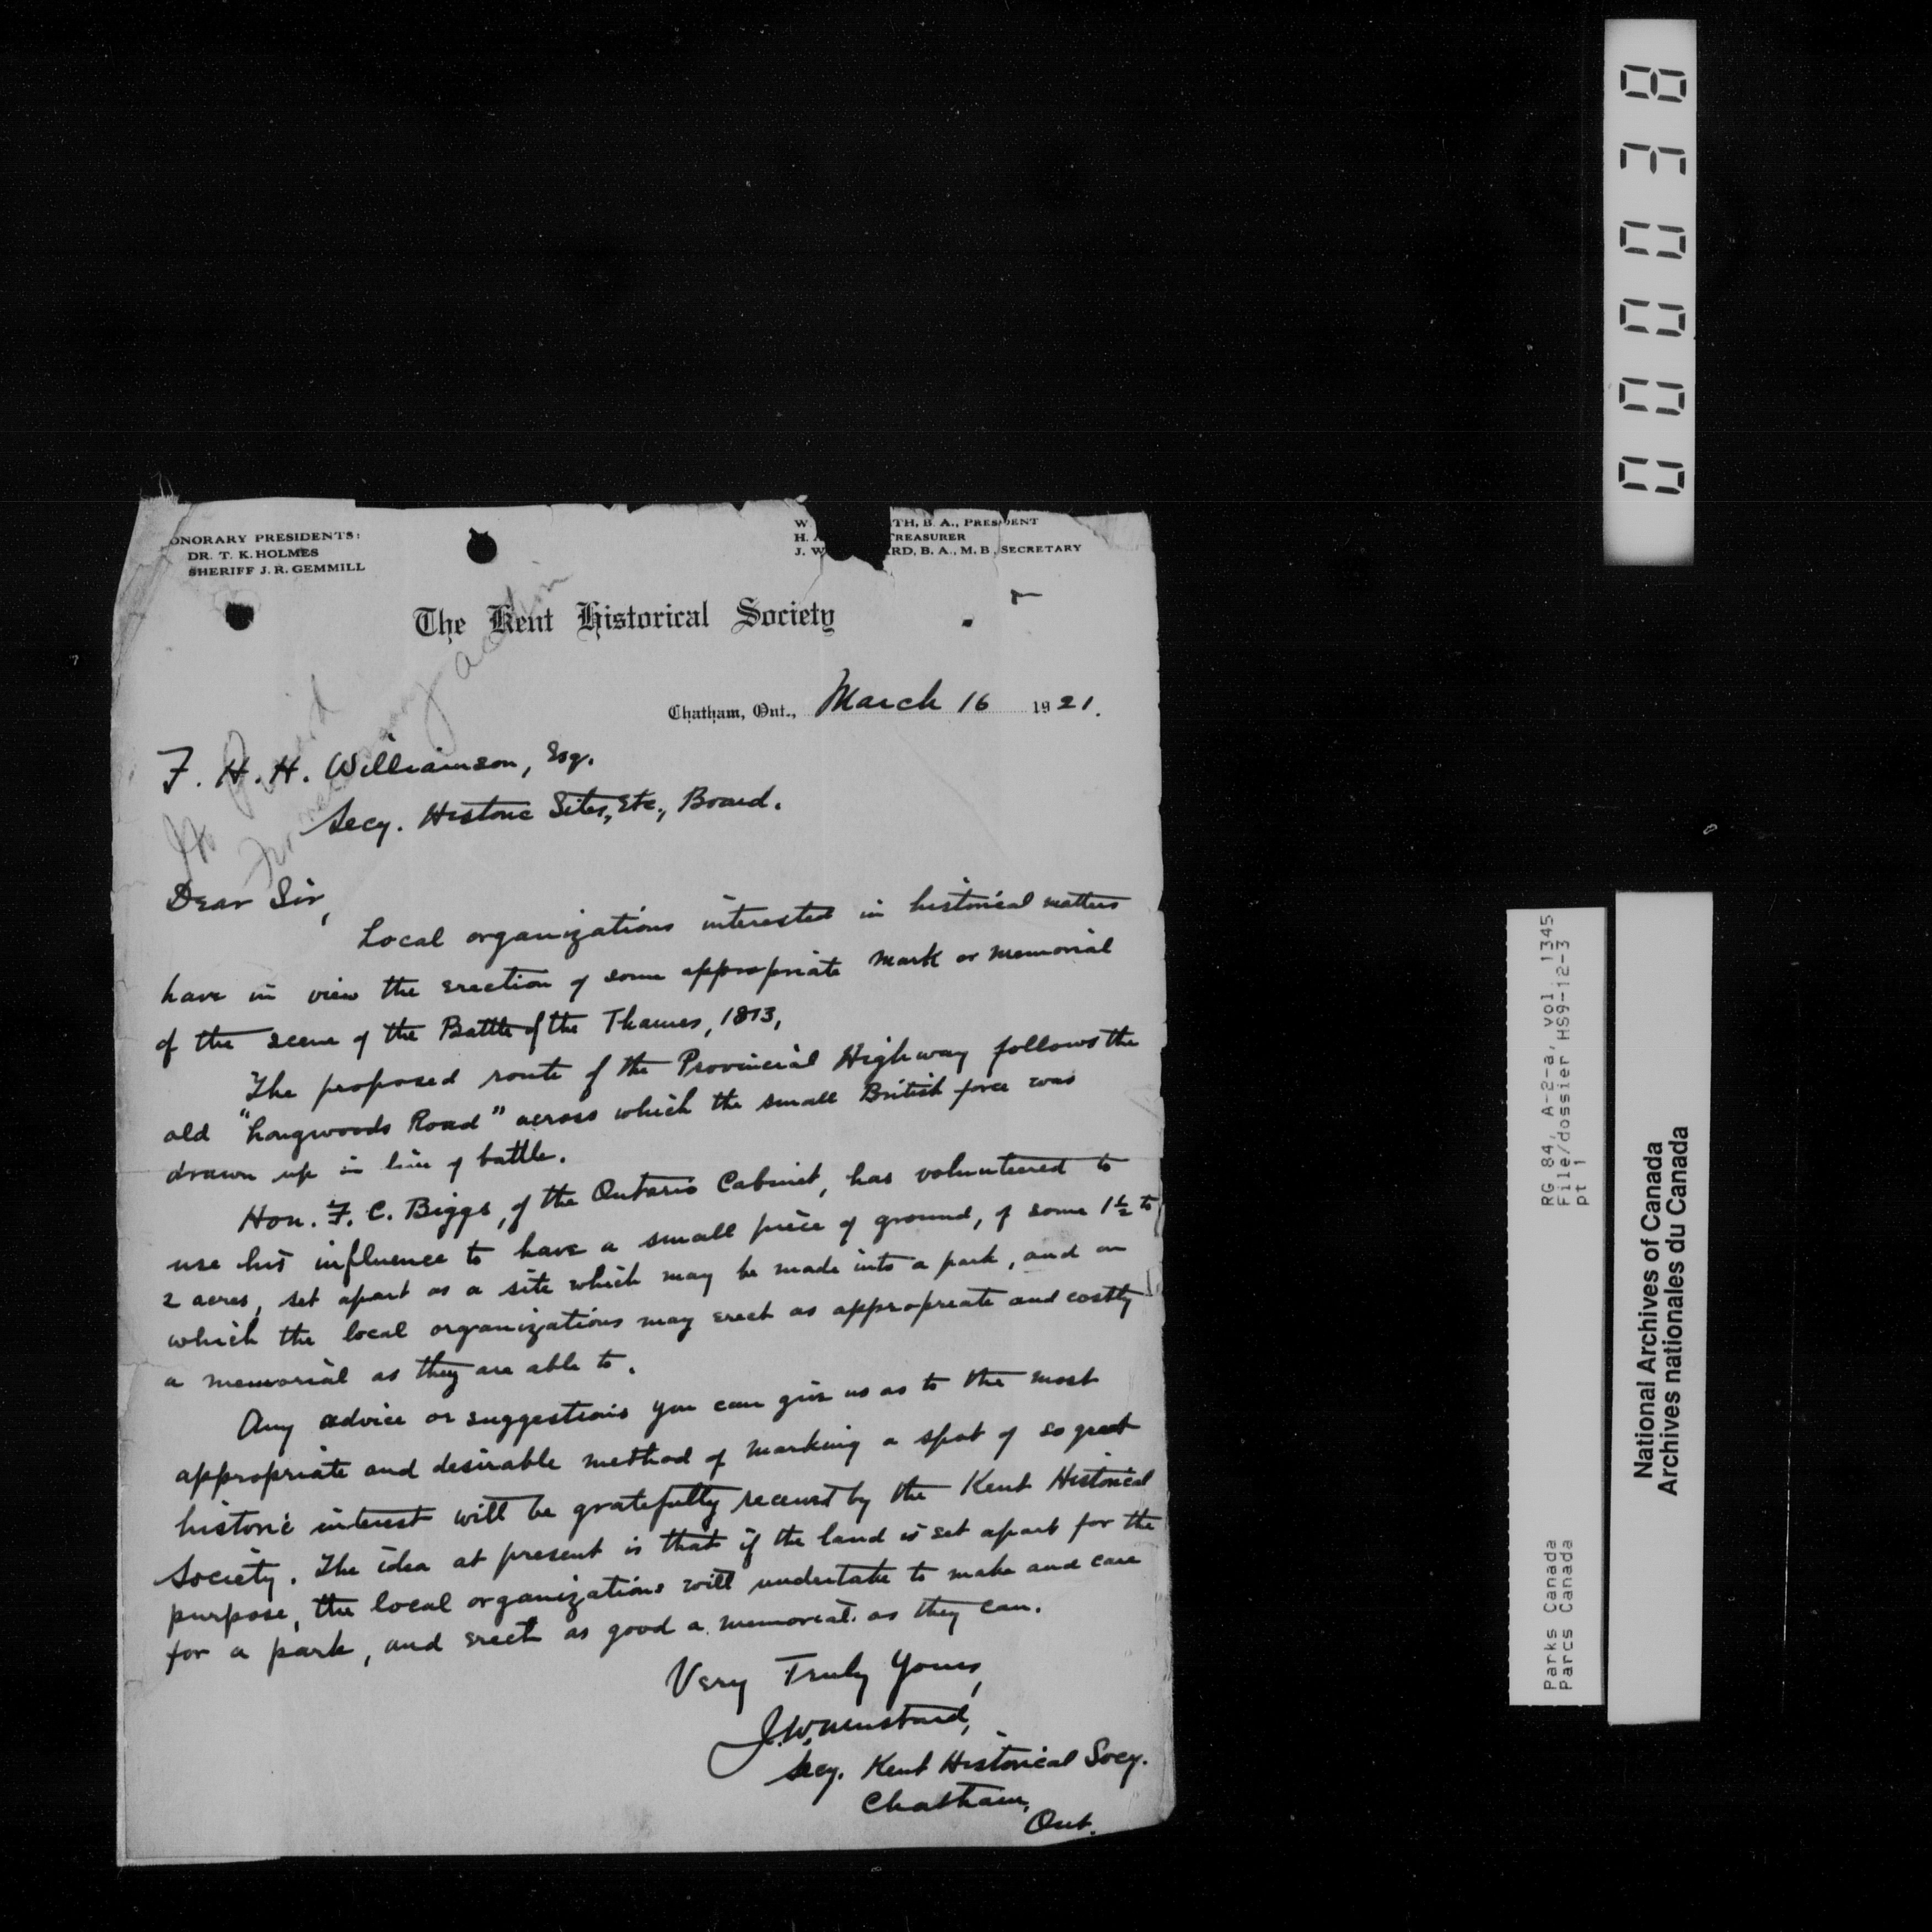 ONORARY PRESIDENTS:
DR. T. K. HOLMES
SHERIFF J. R. GEMMILL
W. TH, B. A., PRESIDENT
H. A TREASURER
J. W RD, B. A., M. B., SECRETARY
The Kent Historical Society
Chatham, Ont., March 16 1921.
F. H. H. Williamson, Esq.
Secy. Historic Sites, Etc., Board.
Dear Sir,
Local organizations interested in historical matters
have in view the erection of some appropriate mark or memorial
of the scene of the Battle of the Thames, 1813,
The proposed route of the Provincial Highway follows the
old "Longwoods Road" across which the small British force was
drawn up in line of battle.
Hon. F. C. Biggs, of the Ontario Cabinet, has volunteered to
use his influence to have a small piece of ground, of some 1½ to
2 acres, set apart as a site which may be made into a park, and on
which the local organizations may erect as appropriate and costly
a memorial as they are able to.
Any advice or suggestions you can give us as to the most
appropriate and desirable method of marking a spot of so great
historic interest will be gratefully received by the Kent Historical
Society. The idea at present is that if the land is set apart for the
purpose, the local organizations will undertake to make and care
for a park, and erect as good a memorial as they can.
Very Truly Yours,
J. W. Mustard,
Secy. Kent Historical Socy.
Chatham,
Ont.
000038
RG 84, A-2-a, vol. 1345
File/dossier HS9-12-3
pt 1
Parks Canada
Parcs Canada
National Archives of Canada
Archives nationales du Canada